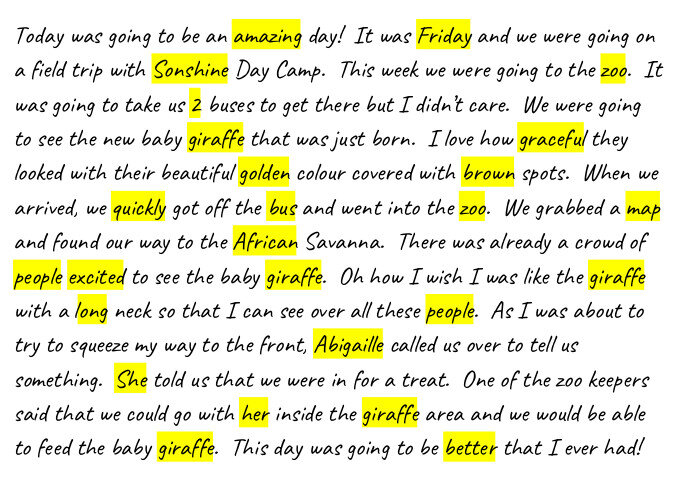 Today was going to be an amazing day! It was Friday and we were going on
a field trip with Sonshine Day Camp. This week we were going to the zoo. It
was going to take us 2 buses to get there but I didn't care. We were going
to see the new baby giraffe that was just born. I love how graceful they
looked with their beautiful golden colour covered with brown spots. When we
arrived, we quickly got off the bus and went into the zoo. We grabbed a map
and found our way to the African Savanna. There was already a crowd of
people excited to see the baby giraffe. Oh how I wish I was like the giraffe
with a long neck so that I can see over all these people. As I was about to
try to squeeze my way to the front, Abigaille called us over to tell us
something. She told us that we were in for a treat. One of the zoo keepers
said that we could go with her inside the giraffe area and we would be able
to feed the baby giraffe. This day was going to be better that I ever had!